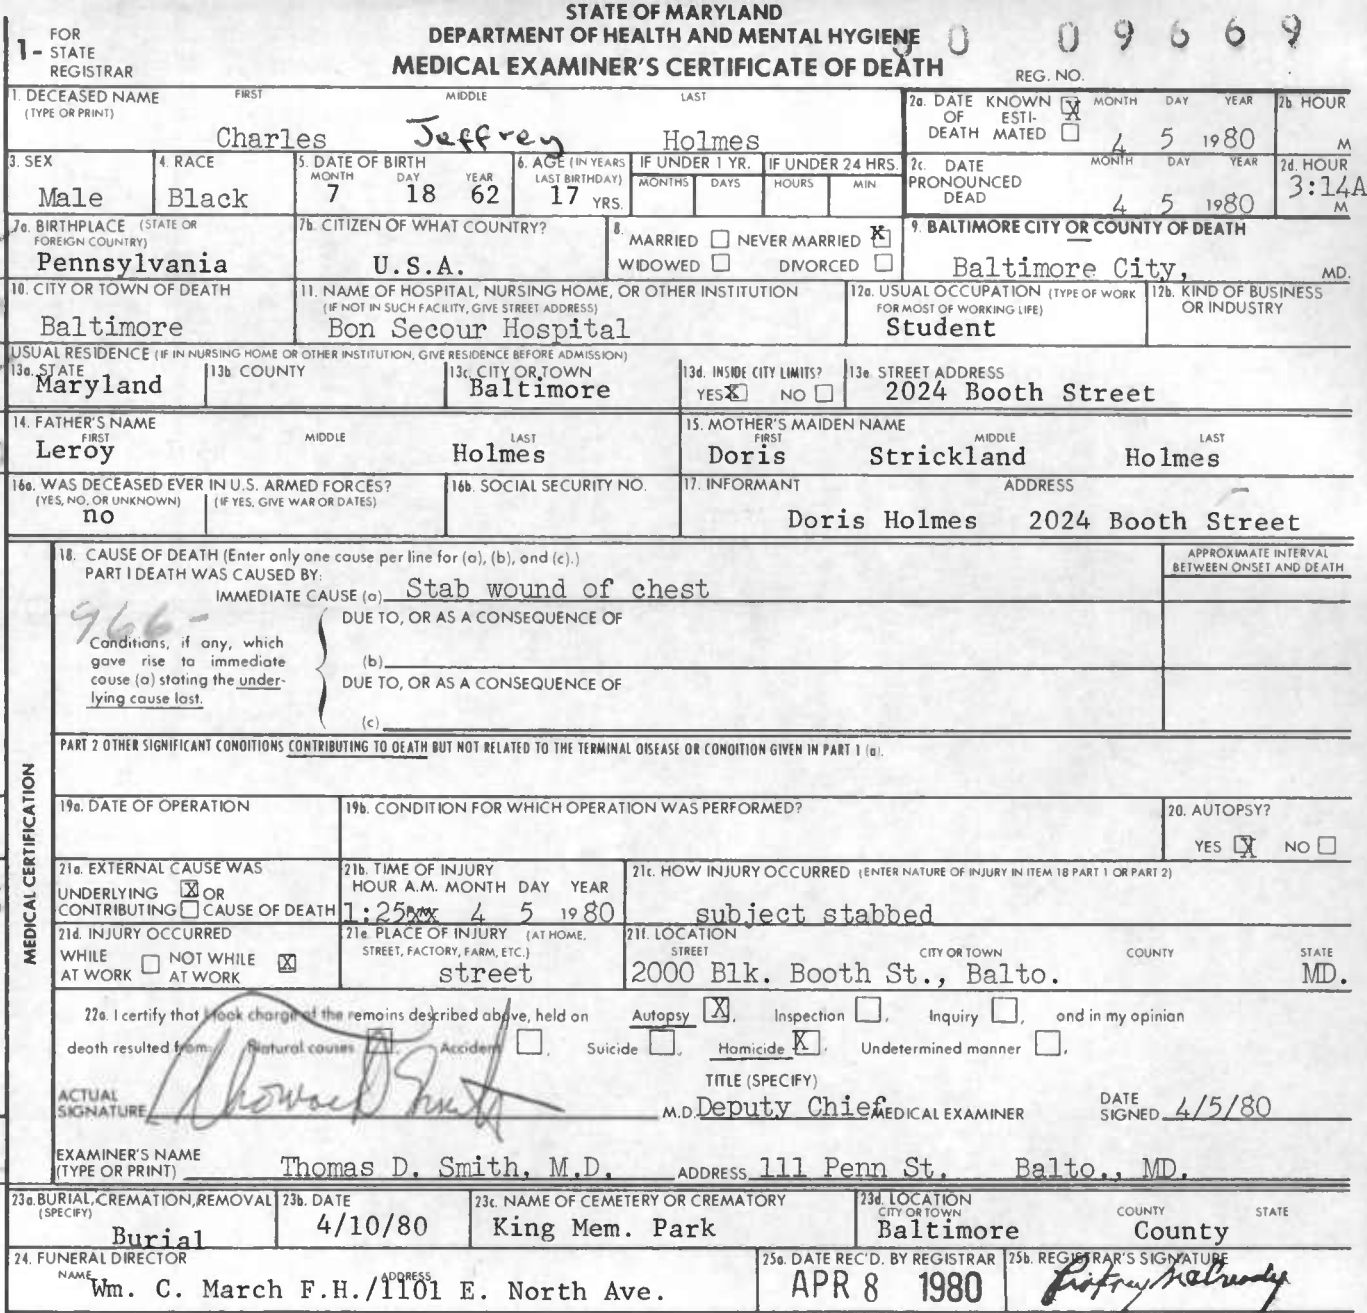 STATE OF MARYLAND
DEPARTMENT OF HEALTH AND MENTAL HYGIENE
MEDICAL EXAMINER'S CERTIFICATE OF DEATH
1- FOR STATE REGISTRAR
0 09669
REG. NO.
1. DECEASED NAME (TYPE OR PRINT) FIRST MIDDLE LAST
Charles Jeffrey Holmes
2a. DATE OF DEATH KNOWN X ESTIMATED MONTH DAY YEAR
4 5 1980
2b. HOUR
M
3. SEX
Male
4. RACE
Black
5. DATE OF BIRTH
MONTH DAY YEAR
7 18 62
6. AGE (IN YEARS LAST BIRTHDAY)
17 YRS.
IF UNDER 1 YR.
MONTHS DAYS
IF UNDER 24 HRS.
HOURS MIN.
2c. DATE PRONOUNCED DEAD MONTH DAY YEAR
4 5 1980
2d. HOUR
3:14A
M
7a. BIRTHPLACE (STATE OR FOREIGN COUNTRY)
Pennsylvania
7b. CITIZEN OF WHAT COUNTRY?
U.S.A.
8. MARRIED NEVER MARRIED X
WIDOWED DIVORCED
9. BALTIMORE CITY OR COUNTY OF DEATH
Baltimore City, MD.
10. CITY OR TOWN OF DEATH
Baltimore
11. NAME OF HOSPITAL, NURSING HOME, OR OTHER INSTITUTION
(IF NOT IN SUCH FACILITY, GIVE STREET ADDRESS)
Bon Secour Hospital
12a. USUAL OCCUPATION (TYPE OF WORK FOR MOST OF WORKING LIFE)
Student
12b. KIND OF BUSINESS OR INDUSTRY
USUAL RESIDENCE (IF IN NURSING HOME OR OTHER INSTITUTION, GIVE RESIDENCE BEFORE ADMISSION)
13a. STATE
Maryland
13b. COUNTY
13c. CITY OR TOWN
Baltimore
13d. INSIDE CITY LIMITS?
YES X NO
13e. STREET ADDRESS
2024 Booth Street
14. FATHER'S NAME
FIRST MIDDLE LAST
Leroy Holmes
15. MOTHER'S MAIDEN NAME
FIRST MIDDLE LAST
Doris Strickland Holmes
16a. WAS DECEASED EVER IN U.S. ARMED FORCES?
(YES, NO, OR UNKNOWN) (IF YES, GIVE WAR OR DATES)
no
16b. SOCIAL SECURITY NO.
17. INFORMANT ADDRESS
Doris Holmes 2024 Booth Street
MEDICAL CERTIFICATION
18. CAUSE OF DEATH (Enter only one cause per line for (a), (b), and (c).)
APPROXIMATE INTERVAL BETWEEN ONSET AND DEATH
PART I DEATH WAS CAUSED BY:
IMMEDIATE CAUSE (a) Stab wound of chest
966-
DUE TO, OR AS A CONSEQUENCE OF
Conditions, if any, which gave rise to immediate cause (a) stating the underlying cause last.
(b)
DUE TO, OR AS A CONSEQUENCE OF
(c)
PART 2 OTHER SIGNIFICANT CONDITIONS CONTRIBUTING TO DEATH BUT NOT RELATED TO THE TERMINAL DISEASE OR CONDITION GIVEN IN PART 1 (a).
19a. DATE OF OPERATION
19b. CONDITION FOR WHICH OPERATION WAS PERFORMED?
20. AUTOPSY?
YES X NO
21a. EXTERNAL CAUSE WAS
UNDERLYING X OR
CONTRIBUTING CAUSE OF DEATH
21b. TIME OF INJURY
HOUR A.M. MONTH DAY YEAR
1:25 xx 4 5 1980
21c. HOW INJURY OCCURRED (ENTER NATURE OF INJURY IN ITEM 18 PART 1 OR PART 2)
subject stabbed
21d. INJURY OCCURRED
WHILE AT WORK NOT WHILE AT WORK X
21e. PLACE OF INJURY (AT HOME, STREET, FACTORY, FARM, ETC.)
street
21f. LOCATION
STREET CITY OR TOWN COUNTY STATE
2000 Blk. Booth St., Balto. MD.
22a. I certify that I took charge of the remains described above, held on Autopsy X, Inspection, Inquiry, and in my opinion
death resulted from: Natural causes, Accident, Suicide, Homicide X, Undetermined manner.
TITLE (SPECIFY)
ACTUAL SIGNATURE Thomas D Smith M.D. Deputy Chief MEDICAL EXAMINER
DATE SIGNED 4/5/80
EXAMINER'S NAME (TYPE OR PRINT) Thomas D. Smith, M.D. ADDRESS 111 Penn St. Balto., MD.
23a. BURIAL, CREMATION, REMOVAL (SPECIFY)
Burial
23b. DATE
4/10/80
23c. NAME OF CEMETERY OR CREMATORY
King Mem. Park
23d. LOCATION
CITY OR TOWN COUNTY STATE
Baltimore County
24. FUNERAL DIRECTOR
NAME ADDRESS
Wm. C. March F.H./1101 E. North Ave.
25a. DATE REC'D. BY REGISTRAR
APR 8 1980
25b. REGISTRAR'S SIGNATURE